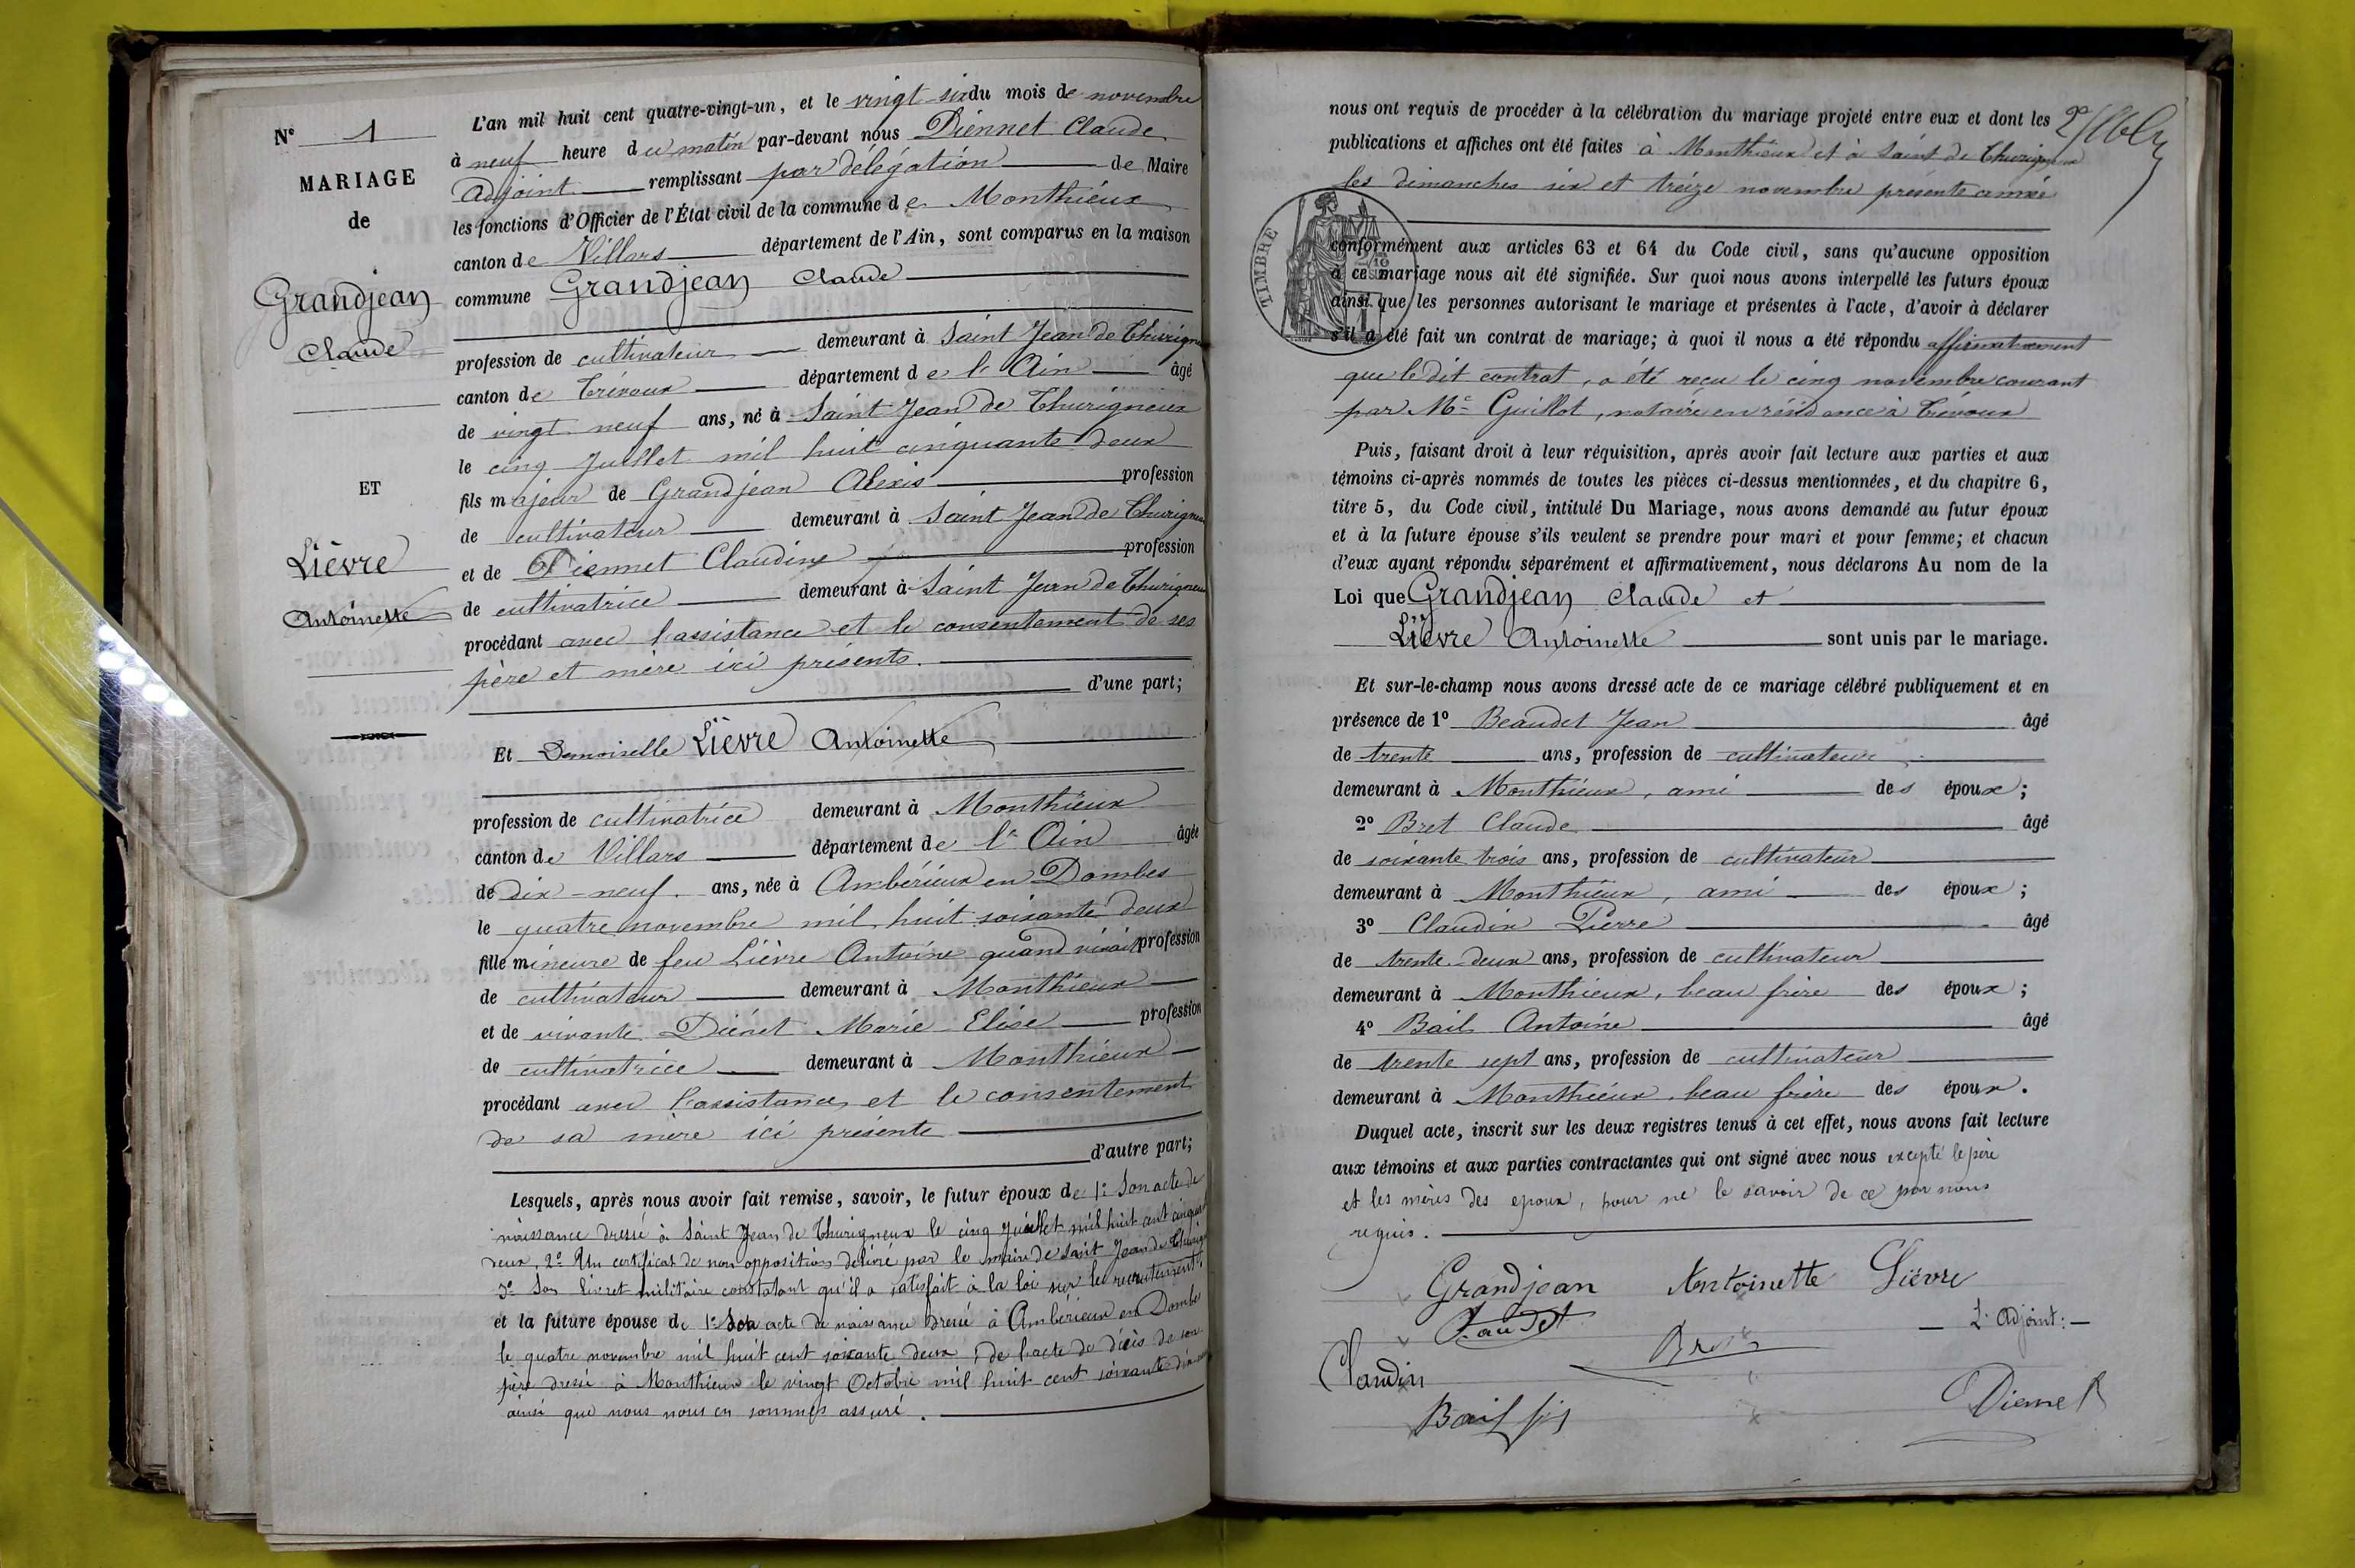 N° 1
MARIAGE
de
Grandjean
Claude
ET
Lièvre
Antoinette
L'an mil huit cent quatre-vingt-un, et le vingt six du mois de novembre
à neuf heure du matin par-devant nous Diennet Claude
Adjoint remplissant par délégation de Maire
les fonctions d'Officier de l'État civil de la commune de Monthieux
canton de Villars département de l'Ain, sont comparus en la maison
commune Grandjean Claude
profession de cultivateur demeurant à Saint Jean de Thurigneux
canton de Trévoux département de l'Ain âgé
de vingt neuf ans, né à Saint Jean de Thurigneux
le cinq Juillet mil huit cinquante deux
fils majeur de Grandjean Alexis profession
de cultivateur demeurant à Saint Jean de Thurigneux
et de Diennet Claudine profession
de cultivatrice demeurant à Saint Jean de Thurigneux
procédant avec l'assistance et le consentement de ses
père et mère ici présents.
d'une part;
Et Demoiselle Lièvre Antoinette
profession de cultivatrice demeurant à Monthieux
canton de Villars département de l'Ain âgée
de dix-neuf ans, née à Ambérieux en Dombes
le quatre novembre mil huit soixante deux
fille mineure de feu Lièvre Antoine quand vivait profession
de cultivateur demeurant à Monthieux
et de vivante Diénet Marie Elise profession
de cultivatrice demeurant à Monthieux
procédant avec l'assistance et le consentement
de sa mère ici présente
d'autre part;
Lesquels, après nous avoir fait remise, savoir, le futur époux de 1° Son acte de
naissance dressé à Saint Jean de Thurigneux le cinq Juillet mil huit cent cinquante
deux, 2° Un certificat de non opposition délivré par le maire de Saint Jean de Thurigneux
3° Son livret militaire constatant qu'il a satisfait à la loi sur le recrutement.
et la future épouse de 1° Son acte de naissance dressé à Ambérieux en Dombes
le quatre novembre mil huit cent soixante deux, de l'acte de décès de son
père dressé à Monthieux le vingt Octobre mil huit cent soixante
ainsi que nous nous en sommes assuré.
nous ont requis de procéder à la célébration du mariage projeté entre eux et dont les
publications et affiches ont été faites à Monthieux et à Saint de Thurigneux
les dimanches six et treize novembre présente année
TIMBRE
conformément aux articles 63 et 64 du Code civil, sans qu'aucune opposition
à ce mariage nous ait été signifiée. Sur quoi nous avons interpellé les futurs époux
ainsi que les personnes autorisant le mariage et présentes à l'acte, d'avoir à déclarer
s'il a été fait un contrat de mariage; à quoi il nous a été répondu affirmativement
que le dit contrat, a été reçu le cinq novembre courant
par Me Guillot, notaire en résidence à Trévoux
Puis, faisant droit à leur réquisition, après avoir fait lecture aux parties et aux
témoins ci-après nommés de toutes les pièces ci-dessus mentionnées, et du chapitre 6,
titre 5, du Code civil, intitulé Du Mariage, nous avons demandé au futur époux
et à la future épouse s'ils veulent se prendre pour mari et pour femme; et chacun
d'eux ayant répondu séparément et affirmativement, nous déclarons Au nom de la
Loi que Grandjean Claude et
Lièvre Antoinette sont unis par le mariage.
Et sur-le-champ nous avons dressé acte de ce mariage célébré publiquement et en
présence de 1° Beaudet Jean âgé
de trente ans, profession de cultivateur
demeurant à Monthieux, ami des époux;
2° Bret Claude âgé
de soixante trois ans, profession de cultivateur
demeurant à Monthieux, ami des époux;
3° Claudin Pierre âgé
de trente deux ans, profession de cultivateur
demeurant à Monthieux, beau frère des époux;
4° Bail Antoine âgé
de trente sept ans, profession de cultivateur
demeurant à Monthieux, beau frère des époux.
Duquel acte, inscrit sur les deux registres tenus à cet effet, nous avons fait lecture
aux témoins et aux parties contractantes qui ont signé avec nous excepté le père
et les mères des époux, pour ne le savoir de ce par nous
requis.
Grandjean Antoinette Lièvre
L'Adjoint:
Bret
Claudin
Diennet
Bail fils